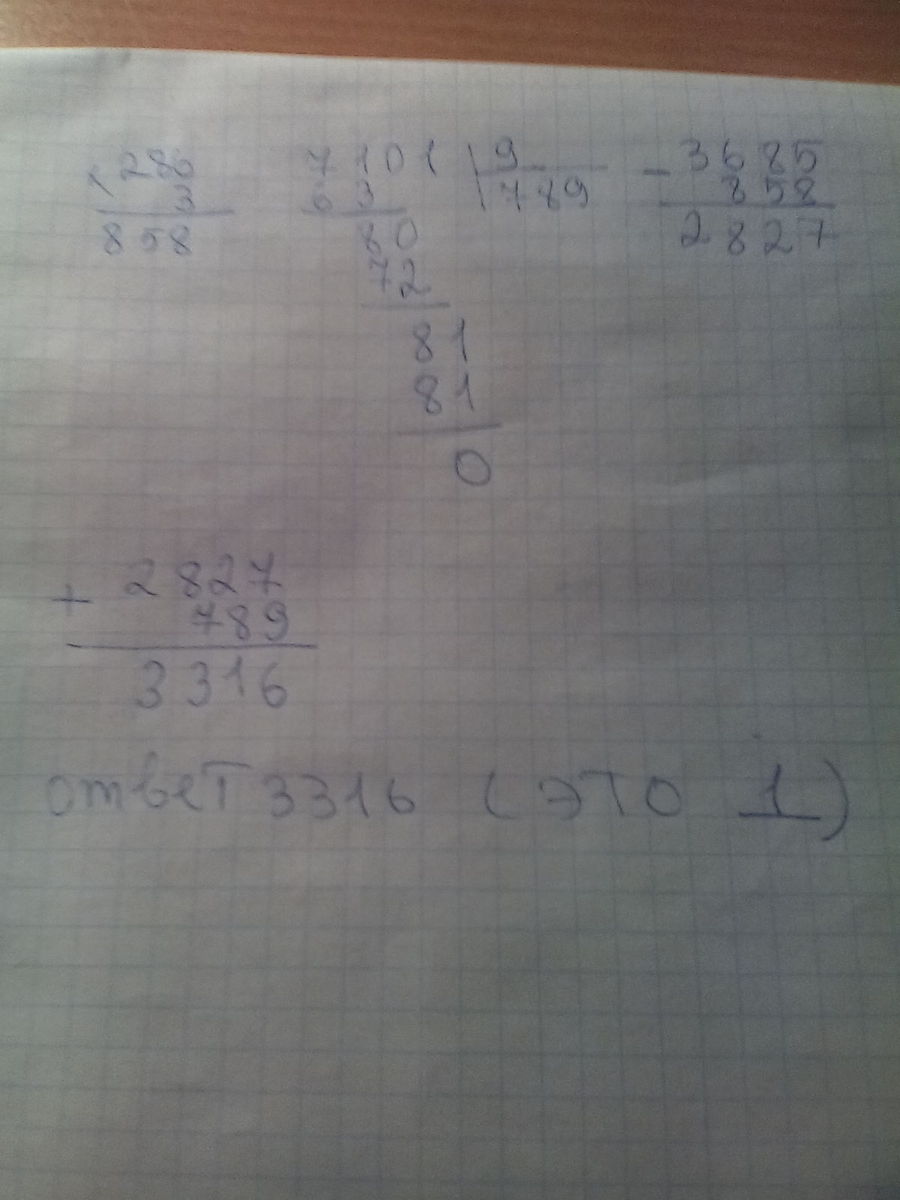 × 286
3
858
7101 | 9
63 789
80
72
81
81
0
- 3685
858
2827
+ 2827
789
3316
ответ 3316 (это 1)